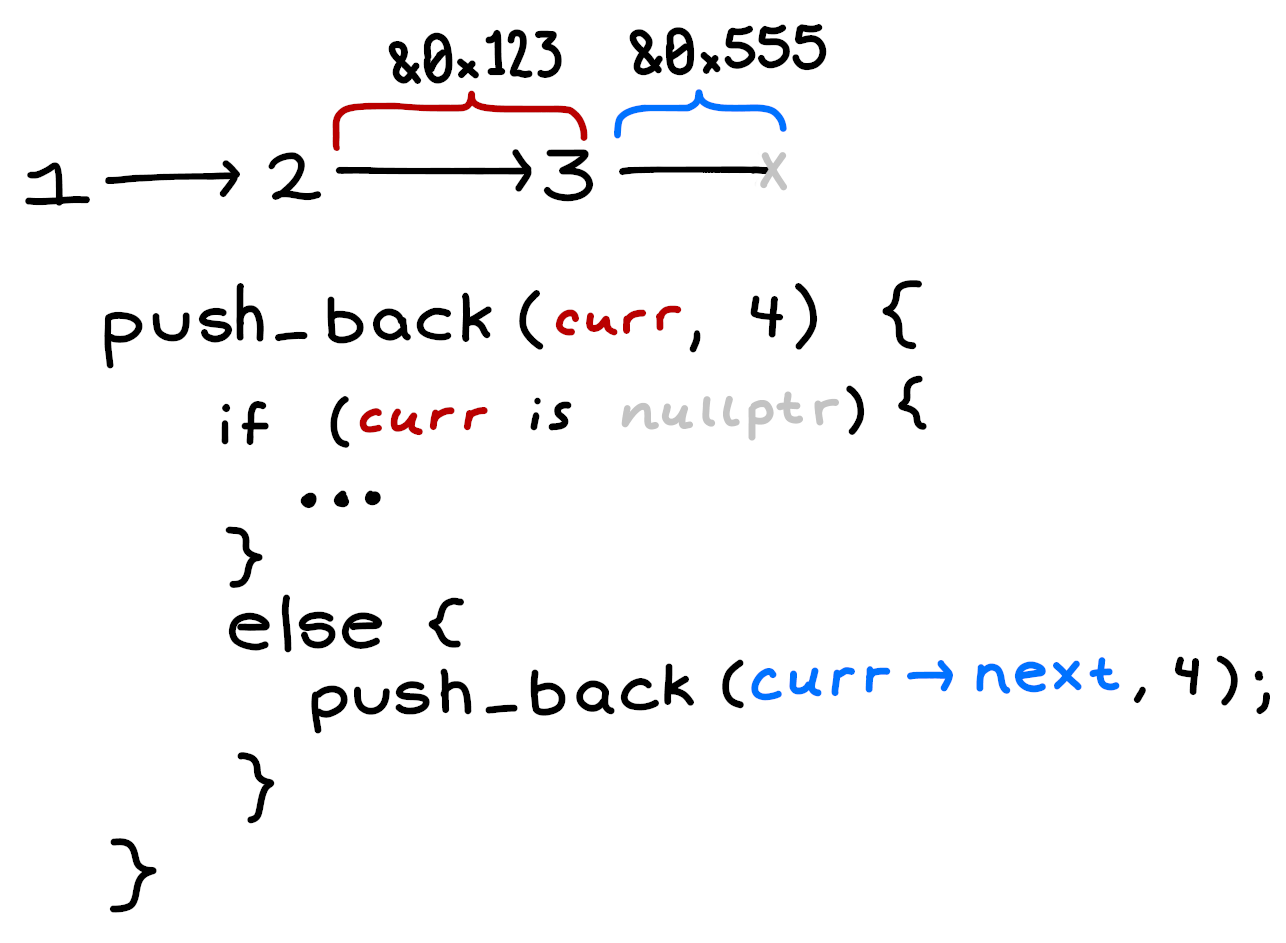 &0x123 &0x555
1 → 2 → 3 — x
push_back (curr, 4) {
if (curr is nullptr) {
...
}
else {
push_back (curr → next, 4);
}
}